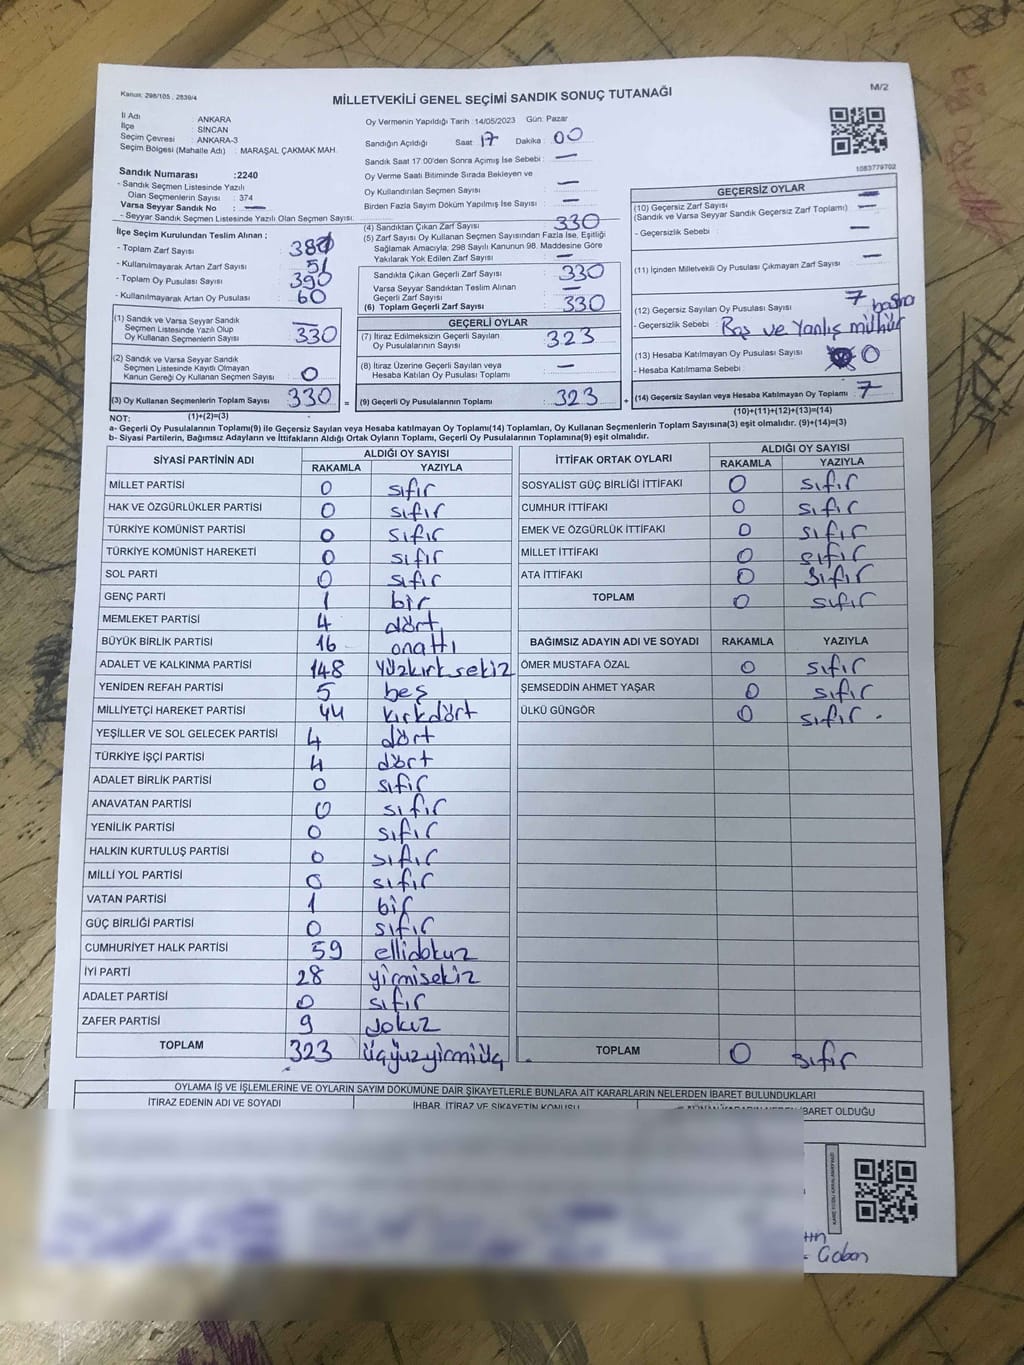 Kanun: 298/105 , 2839/4
MİLLETVEKİLİ GENEL SEÇİMİ SANDIK SONUÇ TUTANAĞI
M/2
İl Adı : ANKARA
İlçe : SİNCAN
Seçim Çevresi : ANKARA-3
Seçim Bölgesi (Mahalle Adı) : MARAŞAL ÇAKMAK MAH.
Sandık Numarası :2240
- Sandık Seçmen Listesinde Yazılı
Olan Seçmenlerin Sayısı : 374
Varsa Seyyar Sandık No : —
- Seyyar Sandık Seçmen Listesinde Yazılı Olan Seçmen Sayısı:
Oy Vermenin Yapıldığı Tarih :14/05/2023 Gün: Pazar
Sandığın Açıldığı Saat 17 Dakika : 00
Sandık Saat 17.00'den Sonra Açımış İse Sebebi : —
Oy Verme Saati Bitiminde Sırada Bekleyen ve
Oy Kullandırılan Seçmen Sayısı : —
Birden Fazla Sayım Döküm Yapılmış İse Sayısı : —
1083779702
İlçe Seçim Kurulundan Teslim Alınan ;
- Toplam Zarf Sayısı :
- Kullanılmayarak Artan Zarf Sayısı : 51
- Toplam Oy Pusulası Sayısı : 390
- Kullanılmayarak Artan Oy Pusulası : 60
(1) Sandık ve Varsa Seyyar Sandık
Seçmen Listesinde Yazılı Olup
Oy Kullanan Seçmenlerin Sayısı : 330
(2) Sandık ve Varsa Seyyar Sandık
Seçmen Listesinde Kayıtlı Olmayan
Kanun Gereği Oy Kullanan Seçmen Sayısı : 0
(3) Oy Kullanan Seçmenlerin Toplam Sayısı : 330 =
(1)+(2)=(3)
(4) Sandıktan Çıkan Zarf Sayısı : 330
(5) Zarf Sayısı Oy Kullanan Seçmen Sayısından Fazla İse, Eşitliği
Sağlamak Amacıyla, 298 Sayılı Kanunun 98. Maddesine Göre
Yakılarak Yok Edilen Zarf Sayısı : —
Sandıkta Çıkan Geçerli Zarf Sayısı : 330
Varsa Seyyar Sandıktan Teslim Alınan
Geçerli Zarf Sayısı : —
(6) Toplam Geçerli Zarf Sayısı : 330
GEÇERLİ OYLAR
(7) İtiraz Edilmeksizin Geçerli Sayılan
Oy Pusulalarının Sayısı : 323
(8) İtiraz Üzerine Geçerli Sayılan veya
Hesaba Katılan Oy Pusulası Toplamı : —
(9) Geçerli Oy Pusulalarının Toplamı : 323 +
GEÇERSİZ OYLAR
(10) Geçersiz Zarf Sayısı : —
(Sandık ve Varsa Seyyar Sandık Geçersiz Zarf Toplamı) —
- Geçersizlik Sebebi : —
(11) İçinden Milletvekili Oy Pusulası Çıkmayan Zarf Sayısı : —
(12) Geçersiz Sayılan Oy Pusulası Sayısı : 7
- Geçersizlik Sebebi : Boş ve Yanlış mühür basma
(13) Hesaba Katılmayan Oy Pusulası Sayısı : 0
- Hesaba Katılmama Sebebi :
(14) Geçersiz Sayılan veya Hesaba Katılmayan Oy Toplamı : 7
(10)+(11)+(12)+(13)=(14)
NOT:
a- Geçerli Oy Pusulalarının Toplamı(9) ile Geçersiz Sayılan veya Hesaba katılmayan Oy Toplamı(14) Toplamları, Oy Kullanan Seçmenlerin Toplam Sayısına(3) eşit olmalıdır. (9)+(14)=(3)
b- Siyasi Partilerin, Bağımsız Adayların ve İttifakların Aldığı Ortak Oyların Toplamı, Geçerli Oy Pusulalarının Toplamına(9) eşit olmalıdır.
SİYASİ PARTİNİN ADI
ALDIĞI OY SAYISI
RAKAMLA YAZIYLA
MİLLET PARTİSİ 0 sıfır
HAK VE ÖZGÜRLÜKLER PARTİSİ 0 sıfır
TÜRKİYE KOMÜNİST PARTİSİ 0 sıfır
TÜRKİYE KOMÜNİST HAREKETİ 0 sıfır
SOL PARTİ 0 sıfır
GENÇ PARTİ 1 bir
MEMLEKET PARTİSİ 4 dört
BÜYÜK BİRLİK PARTİSİ 16 onaltı
ADALET VE KALKINMA PARTİSİ 148 Yüzkırksekiz
YENİDEN REFAH PARTİSİ 5 beş
MİLLİYETÇİ HAREKET PARTİSİ 44 kırkdört
YEŞİLLER VE SOL GELECEK PARTİSİ 4 dört
TÜRKİYE İŞÇİ PARTİSİ 4 dört
ADALET BİRLİK PARTİSİ 0 sıfır
ANAVATAN PARTİSİ 0 sıfır
YENİLİK PARTİSİ 0 sıfır
HALKIN KURTULUŞ PARTİSİ 0 sıfır
MİLLİ YOL PARTİSİ 0 sıfır
VATAN PARTİSİ 1 bir
GÜÇ BİRLİĞİ PARTİSİ 0 sıfır
CUMHURİYET HALK PARTİSİ 59 ellidokuz
İYİ PARTİ 28 yirmisekiz
ADALET PARTİSİ 0 sıfır
ZAFER PARTİSİ 9 dokuz
TOPLAM 323 üçyüzyirmiüç
İTTİFAK ORTAK OYLARI
ALDIĞI OY SAYISI
RAKAMLA YAZIYLA
SOSYALİST GÜÇ BİRLİĞİ İTTİFAKI 0 sıfır
CUMHUR İTTİFAKI 0 sıfır
EMEK VE ÖZGÜRLÜK İTTİFAKI 0 sıfır
MİLLET İTTİFAKI 0 sıfır
ATA İTTİFAKI 0 sıfır
TOPLAM 0 sıfır
BAĞIMSIZ ADAYIN ADI VE SOYADI RAKAMLA YAZIYLA
ÖMER MUSTAFA ÖZAL 0 sıfır
ŞEMSEDDİN AHMET YAŞAR 0 sıfır
ÜLKÜ GÜNGÖR 0 sıfır
TOPLAM 0 sıfır
OYLAMA İŞ VE İŞLEMLERİNE VE OYLARIN SAYIM DÖKÜMÜNE DAİR ŞİKAYETLERLE BUNLARA AİT KARARLARIN NELERDEN İBARET BULUNDUKLARI
İTİRAZ EDENİN ADI VE SOYADI
İHBAR, İTİRAZ VE ŞİKAYETİN KONUSU
İBARET OLDUĞU